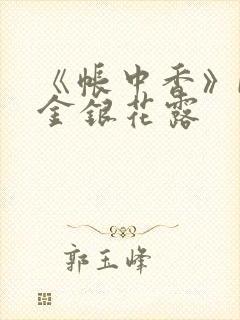 《帐中香》
金银花露
郭玉峰